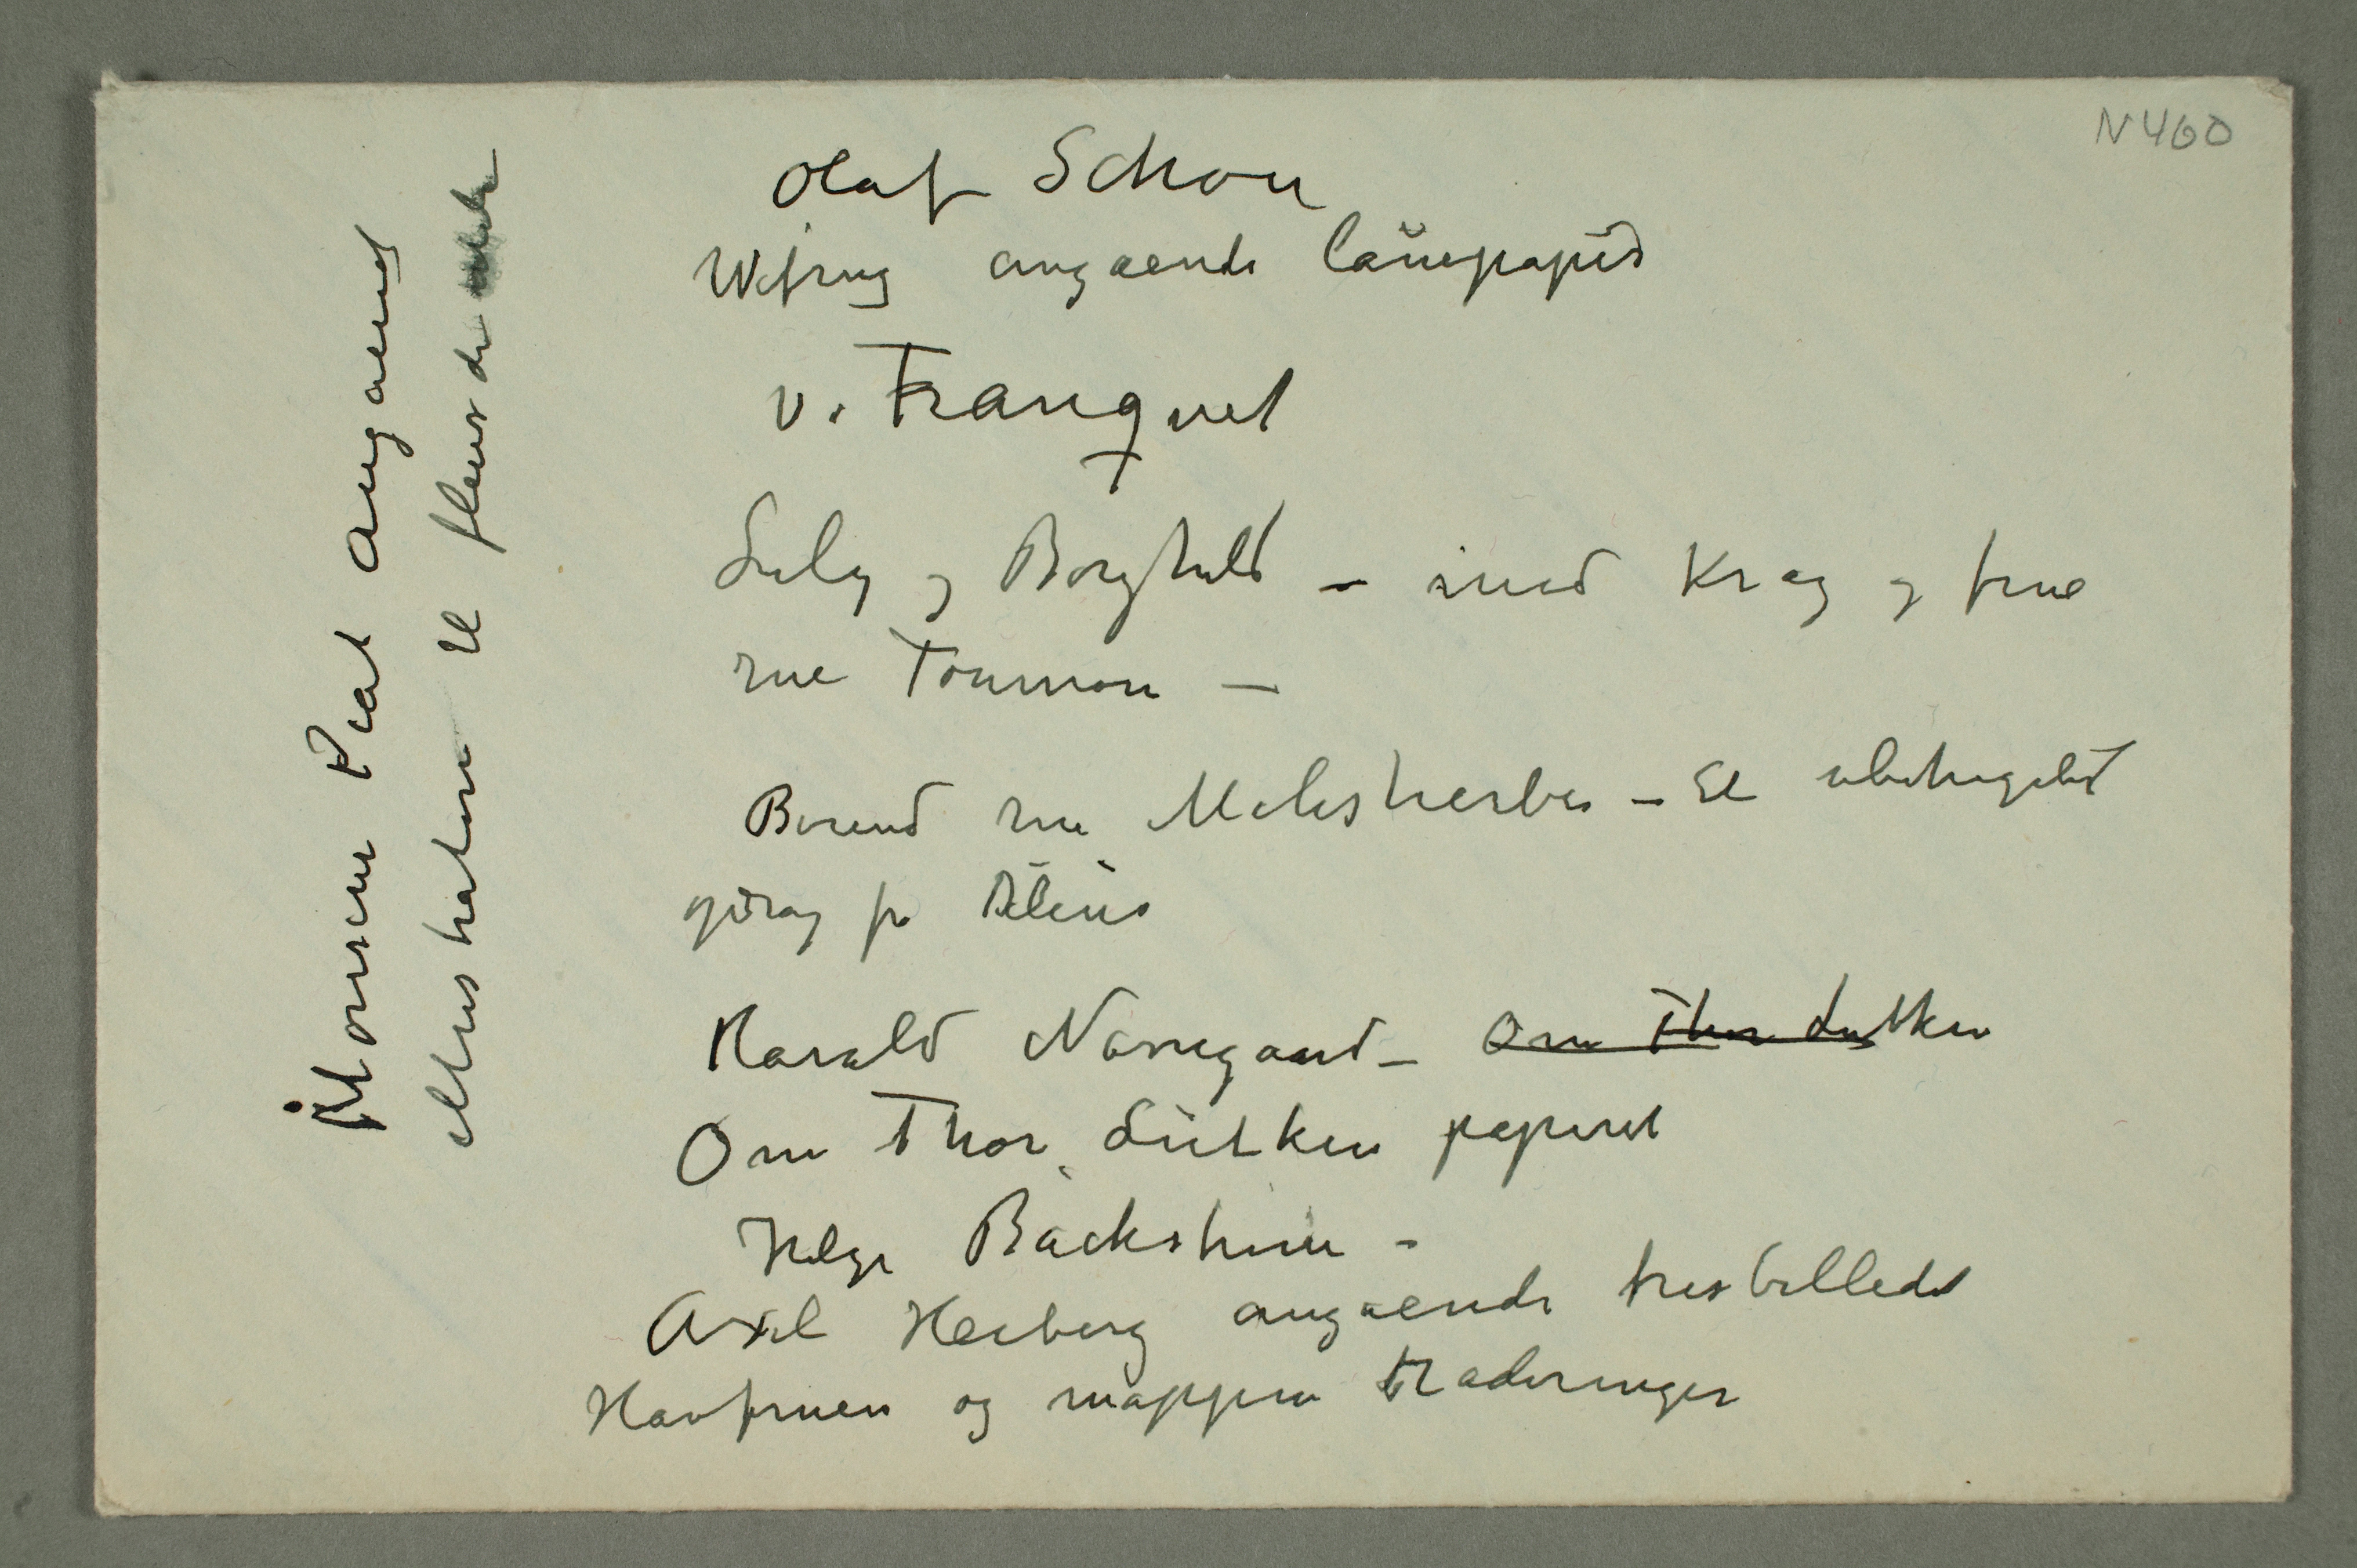 N 460
Olaf Schou
angaaende lånepapir
v. Franquet
Luly og Borghild – med Krag og frue
rue Tournon –
Berend rue Malesherbes – Et ubehageligt
for Delius
Harald Nørregaard – Om Thor Lütken
Om Thor Lütken papiret
Helge Bäckstrøm –
Axel Heiberg angaaende tresbilledet
Havfruen og mappen Raderinger
Monsieur Piat angaaende
illustration til fleurs du mal